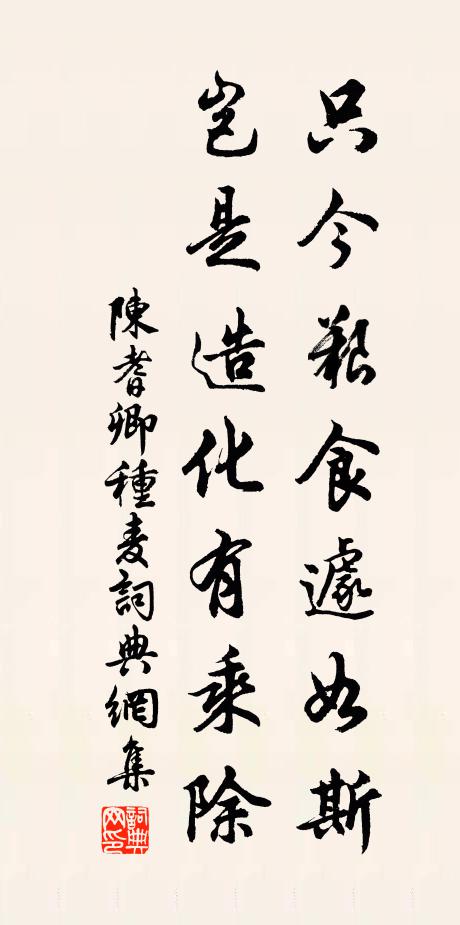 只今艱食遽如斯
豈是造化有乘除
陳耆卿種麦詞典網集
詞典网印